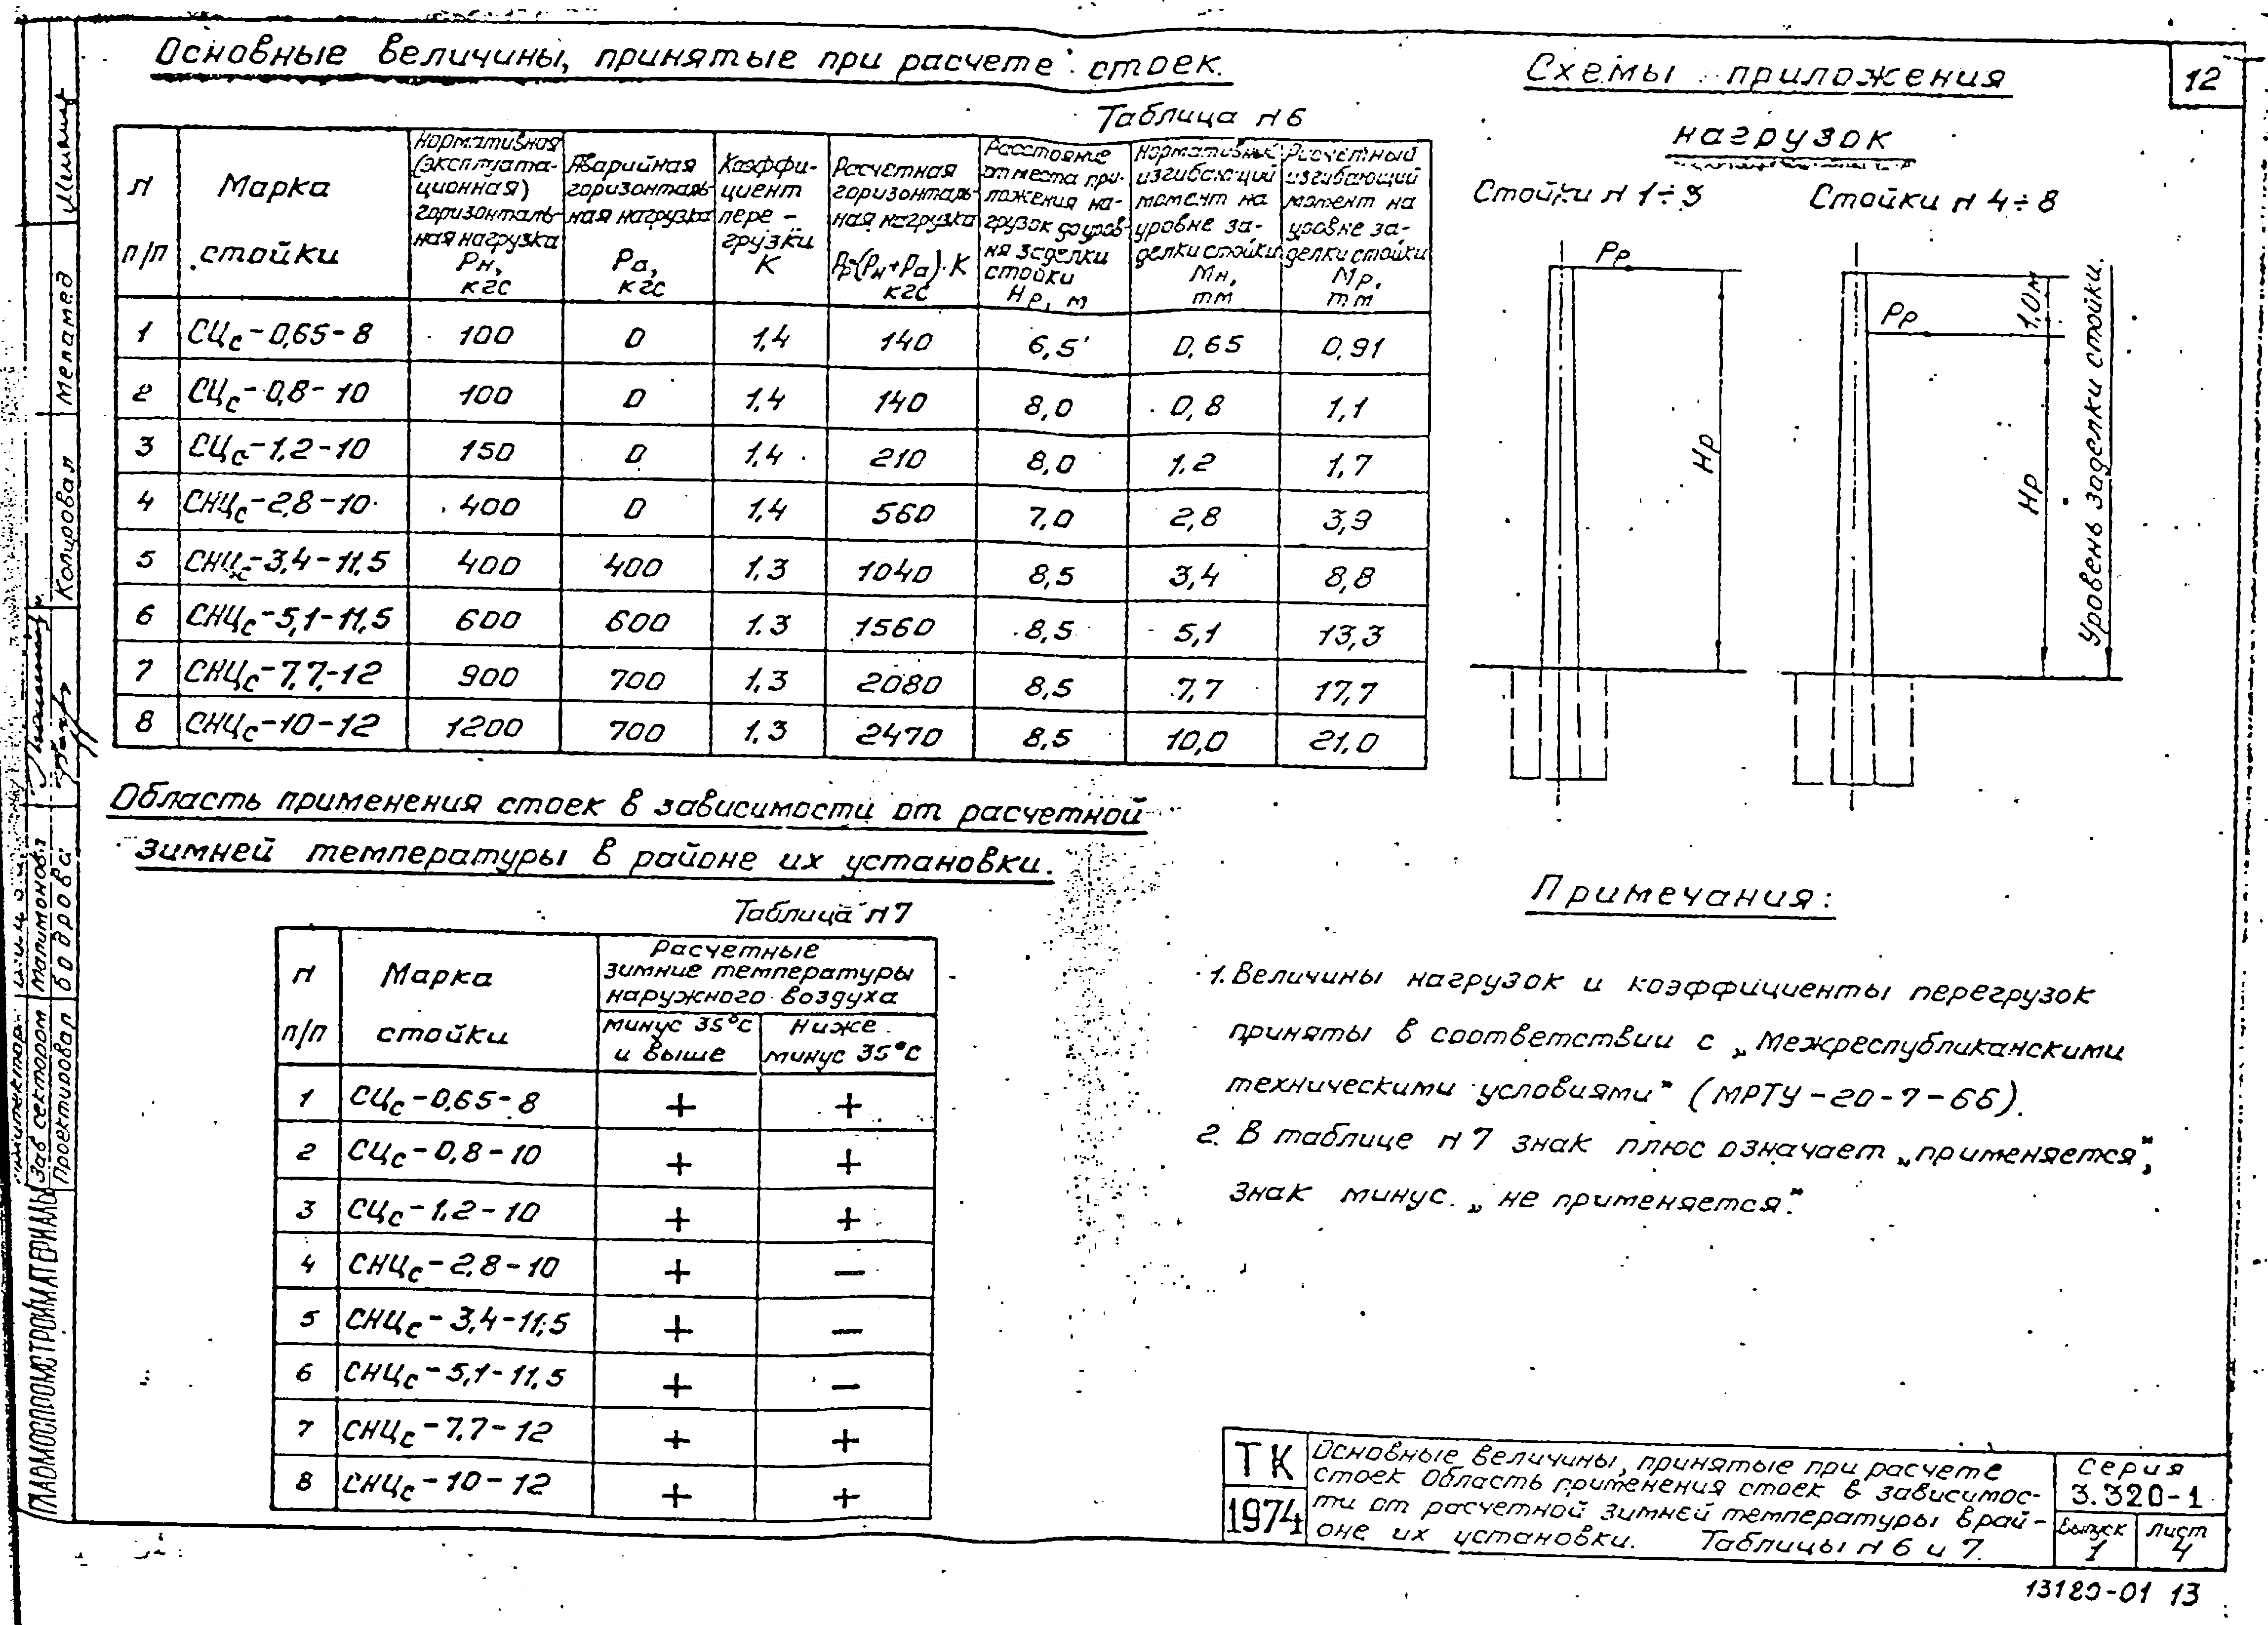 Основные величины, принятые при расчете стоек.
Таблица N 6
N п/п | Марка стойки | Нормативная (эксплуатационная) горизонтальная нагрузка Рн, кгс | Аварийная горизонтальная нагрузка Ра, кгс | Коэффициент перегрузки К | Расчетная горизонтальная нагрузка Рр=(Рн+Ра)·К кгс | Расстояние от места приложения нагрузок до уровня заделки стойки Нр, м | Нормативный изгибающий момент на уровне заделки стойки Мн, тм | Расчетный изгибающий момент на уровне заделки стойки Мр, тм
1 | СЦс-0,65-8 | 100 | 0 | 1,4 | 140 | 6,5 | 0,65 | 0,91
2 | СЦс-0,8-10 | 100 | 0 | 1,4 | 140 | 8,0 | 0,8 | 1,1
3 | СЦс-1,2-10 | 150 | 0 | 1,4 | 210 | 8,0 | 1.2 | 1,7
4 | СНЦс-2,8-10 | 400 | 0 | 1,4 | 560 | 7,0 | 2,8 | 3,9
5 | СНЦс-3,4-11,5 | 400 | 400 | 1.3 | 1040 | 8,5 | 3,4 | 8,8
6 | СНЦс-5,1-11,5 | 600 | 600 | 1.3 | 1560 | 8,5 | 5,1 | 13,3
7 | СНЦс-7,7-12 | 900 | 700 | 1,3 | 2080 | 8,5 | 7,7 | 17,7
8 | СНЦс-10-12 | 1200 | 700 | 1,3 | 2470 | 8,5 | 10,0 | 21,0
Схемы приложения
нагрузок
12
Стойки N 1÷3
Стойки N 4÷8
Рр
Нр
Рр
1,0м
Нр
Уровень заделки стойки.
Область применения стоек в зависимости от расчетной
зимней температуры в районе их установки.
Таблица N 7
N п/п | Марка стойки | Расчетные зимние температуры наружного воздуха
минус 35°С и выше | Ниже минус 35°С
1 | СЦс-0,65-8 | + | +
2 | СЦс-0,8-10 | + | +
3 | СЦс-1.2-10 | + | +
4 | СНЦс-2,8-10 | + | −
5 | СНЦс-3,4-11,5 | + | −
6 | СНЦс-5,1-11,5 | + | −
7 | СНЦс-7,7-12 | + | +
8 | СНЦс-10-12 | + | +
Примечания:
1. Величины нагрузок и коэффициенты перегрузок
приняты в соответствии с „Межреспубликанскими
техническими условиями" (МРТУ-20-7-66).
2. В таблице N 7 знак плюс означает „применяется",
знак минус „не применяется".
ТК
1974
Основные величины, принятые при расчете
стоек. Область применения стоек в зависимос-
ти от расчетной зимней температуры в рай-
оне их установки. Таблицы N 6 и 7.
Серия
3.320-1
Выпуск
1
Лист
4
13180-01 13
ГЛАВМОСПРОМСТРОЙМАТЕРИАЛЫ
Зав сектором
Проектировал
Бодрова
Копировал
Меламед